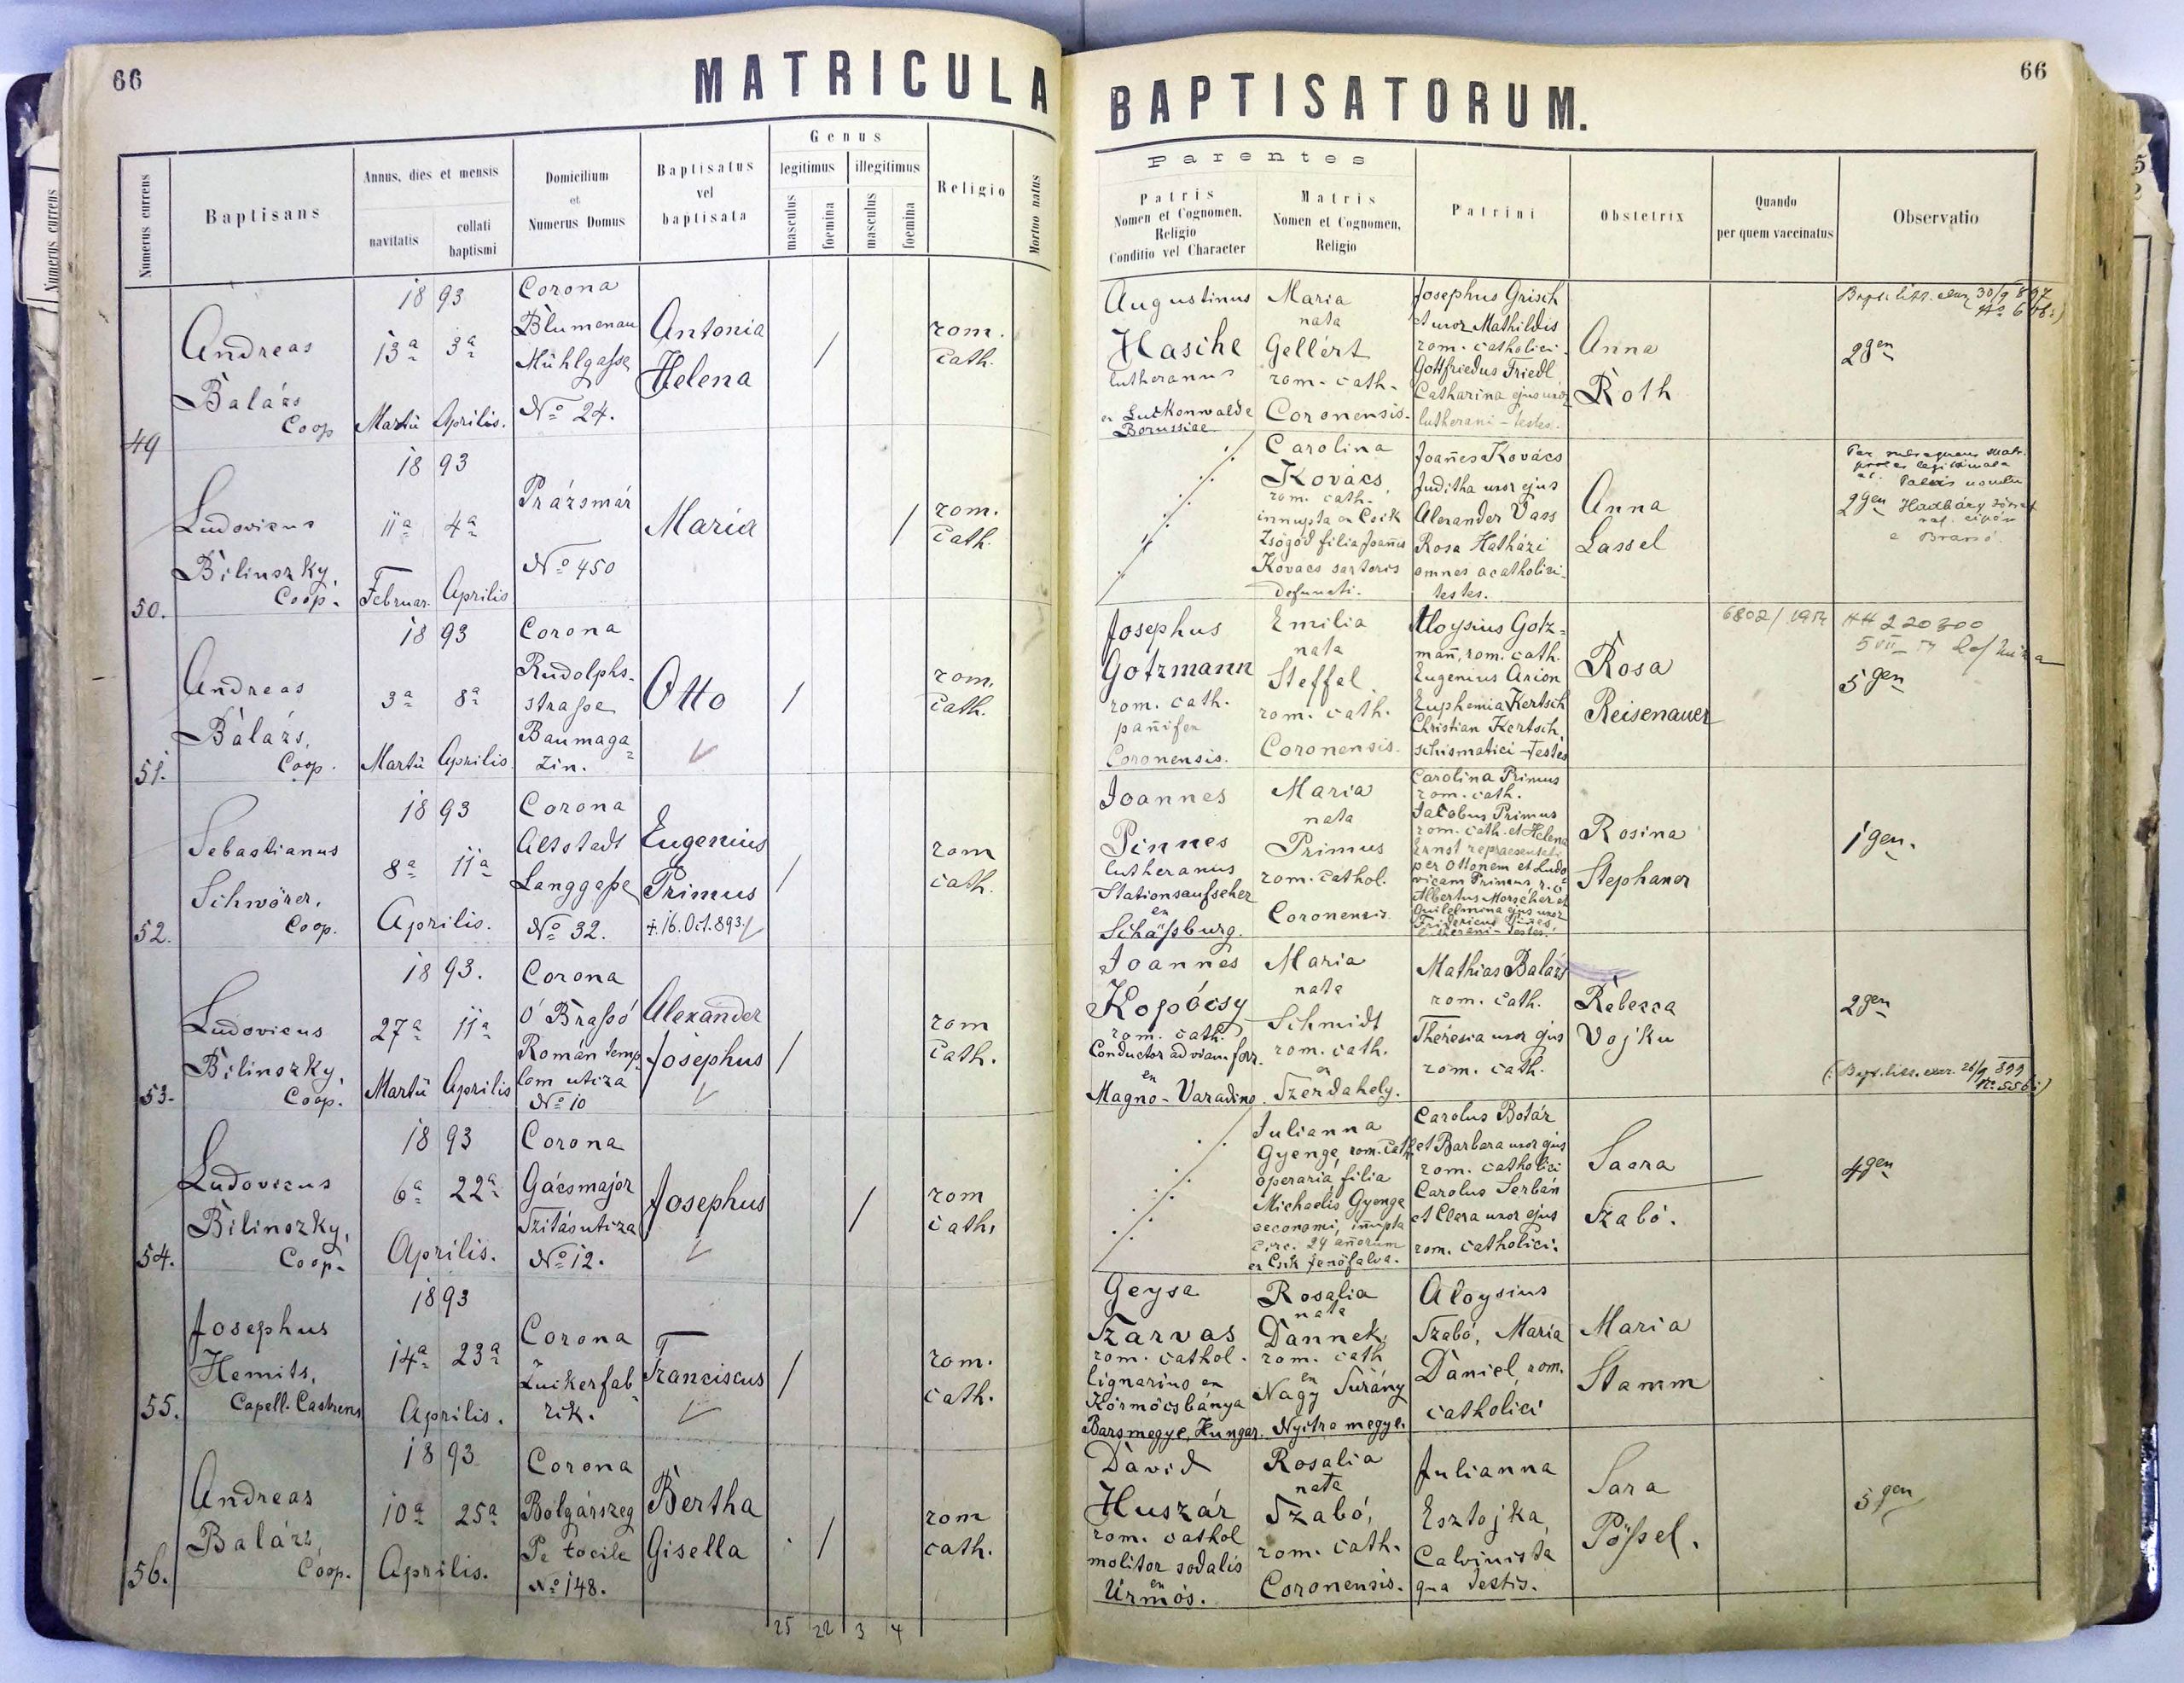 66
MATRICULA
BAPTISATORUM.
66
Numerus currens
Baptisans
Annus, dies et mensis
navitatis
collati
baptismi
Domicilium
et
Numerus Domus
Baptisatus
vel
baptisata
Genus
legitimus
illegitimus
masculus
foemina
masculus
foemina
Religio
Mortuo natus
Parentes
Patris
Nomen et Cognomen,
Religio
Conditio vel Character
Matris
Nomen et Cognomen,
Religio
Patrini
Obstetrix
Quando
per quem vaccinatus
Observatio
49
Andreas
Balázs
Coop
18 93
13a 3a
Martii Aprilis.
Corona
Blumenau
Mühlgasse
No 24.
Antonia
Helena
/
rom.
cath.
Augustinus
Hasche
lutheranus
ex Luckenwalde
Borussiae
Maria
nata
Gellért
rom. cath.
Coronensis.
Josephus Grisch
et uxor Mathildis
rom. catholici.
Gottfriedus Friedl
Catharina ejus uxor
lutherani - testes.
Anna
Roth
2gen
50.
Ludovicus
Bilinszky,
Coop.
18 93
11a 4a
Februar. Aprilis
Prázsmár
No 450
Maria
/
rom.
cath.
Carolina
Kovács,
rom. cath.
innupta ex Csik
Zsögöd filia Joannis
Kovács sartoris
defuncti.
Joannes Kovács
Juditha uxor ejus
Alexander Vass
Rosa Hatházi
omnes acatholici
testes.
Anna
Lassel
2gen
51.
Andreas
Balázs,
Coop.
18 93
3a 8a
Martii Aprilis
Corona
Rudolphs-
strasse
Baumaga=
zin.
Otto
/
rom.
cath.
Josephus
Gotzmann
rom. cath.
pannifex
Coronensis.
Emilia
nata
Steffel
rom. cath.
Coronensis.
Aloysius Gotz=
mann, rom. cath.
Eugenius Arion
Euphemia Kertsch
Christian Kertsch
schismatici - testes
Rosa
Reisenauer
5gen
52.
Sebastianus
Schwörer,
Coop.
18 93
8a 11a
Aprilis.
Corona
Altstadt
Langgasse
No 32.
Eugenius
Primus
+ 16. Oct. 893.
/
rom
cath.
Joannes
Pinnes
lutheranus
Stationsaufseher
ex
Schässburg.
Maria
nata
Primus
rom. cathol.
Coronensis.
Carolina Primus
rom. cath.
Jacobus Primus
rom. cath. et Helena
Ernst repraesentati
per Ottonem et Ludo
vicam Primus r. c.
Albertus Morscher et
Guilelmina ejus uxor
lutherani - testes.
Rosina
Stephaner
1gen.
53.
Ludovicus
Bilinszky,
Coop.
18 93.
27a 11a
Martii Aprilis
Corona
Ó Brassó
Román temp
lom utcza
No 10
Alexander
Josephus
/
rom
cath.
Joannes
Kopócsy
rom. cath.
Conductor ad viam ferr.
ex
Magno-Varadino.
Maria
nata
Schmidt
rom. cath.
ex
Szerdahely.
Mathias Balázs
rom. cath.
Theresia uxor ejus
rom. cath.
Rebecca
Vojku
2gen
54.
Ludovicus
Bilinszky,
Coop.
18 93
6a 22a
Aprilis.
Corona
Gácsmajor
Szitásutcza
No 12.
Josephus
/
rom
cath.
Julianna
Gyenge, rom. cath.
operaria, filia
Michaelis Gyenge
oeconomi, innupta
circ. 24 annorum
ex Csik Jenőfalva.
Carolus Botár
et Barbara uxor ejus
rom. catholici
Carolus Serbán
et Clara uxor ejus
rom. catholici.
Saara
Szabó.
4gen
55.
Josephus
Hemits,
Capell. Castrens
1893
14a 23a
Aprilis.
Corona
Zuckerfab
rik.
Franciscus
/
rom.
cath.
Geysa
Szarvas
rom. cathol.
lignarius ex
Körmöcsbánya
Barsmegye, Hungar.
Rosalia
nata
Dannek
rom. cath
ex
Nagy Surány
Nyitra megye.
Aloysius
Szabó, Maria
Daniel, rom.
catholici
Maria
Stamm
56.
Andreas
Balázs,
Coop.
1893
10a 25a
Aprilis.
Corona
Bolgárszeg
Pe tocile
No 148.
Bertha
Gisella
/
rom
cath.
David
Huszár
rom. cathol
molitor sodalis
ex
Ürmös.
Rosalia
nata
Szabó,
rom. cath.
Coronensis.
Julianna
Esztojka,
Calvinista
qua testis.
Sara
Pössel.
5gen
25 22 3 4